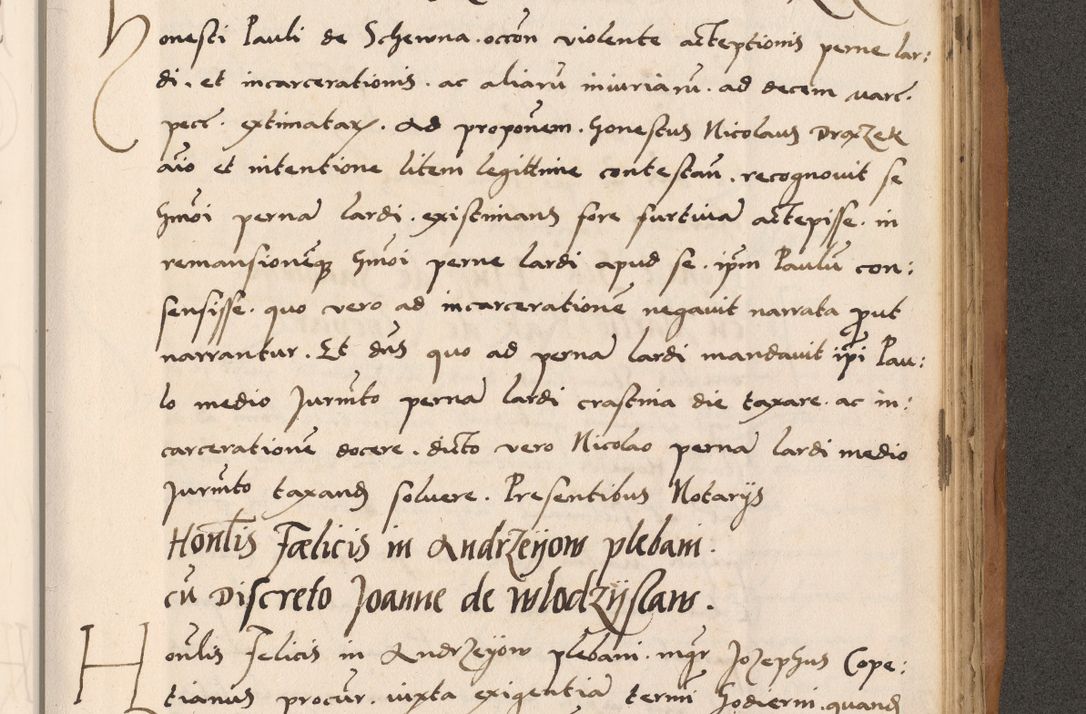 Honesti Pauli de Schewna. occōn violente acceptionis perne lar:
di. et incarcerationis. ac aliarū iniuriarū. ad decem marc.
pecc. extimatar. Ad proponem. honestus Nicolaus DroxZek
aīo et intentione litem legittime contestan̄. recognovit se
hmōi pernā lardi. existimans fore furtivā accepisse. in
remansionēq hmōi perne lardi apud se. ip̄m Paulū con:
sensisse. quo vero ad incarcerationē negavit narrata put
narrantur. Et dn̄s quo ad pernā lardi mandavit ip̄i Pau:
lo medio Jurm̄to pernā lardi crastina die taxare. ac in:
carcerationē docere. dicto vero Nicolao pernā lardi medio
Jurm̄to taxand solvere. Presentibus Notarijs
Honlis Fœlicis in AndrZeyow plebani.
cū Discreto Joanne de Wlodzijslaw.
Honlis Felicis in AndrZeyow plebani. mgr JoZephus Cope:
tianus procur. iuxta exigentiā termī hodierni. quand